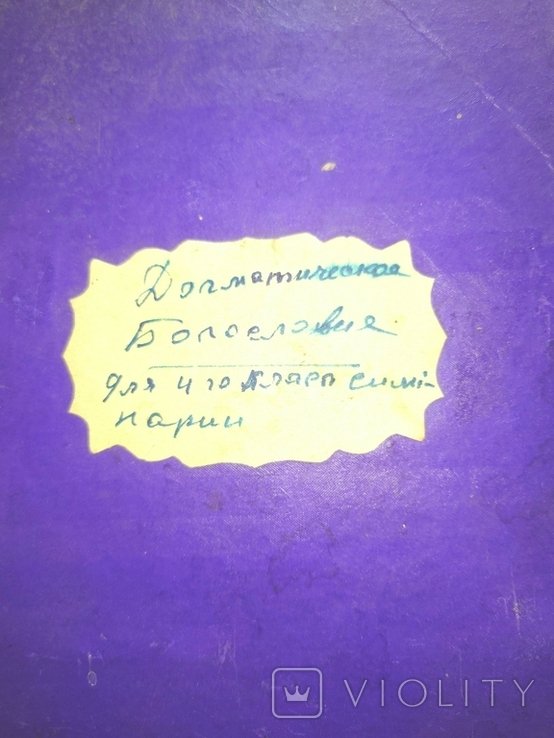 Догматическое
Богословие
для 4 го класа сими-
нарии
VIOLITY